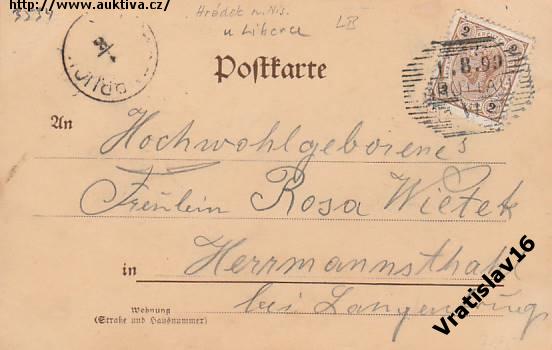 http://www.auktiva.cz/
3539
Hrádek n. Nis.
u Liberce LB
Postkarte
2 2
1.8.99
2
An
Hochwohlgeborenes
Fräulein Rosa Wietek
in Herrmannsthal
bei Langenbruck
Wohnung
(Straße und Hausnummer)
Vratislav16